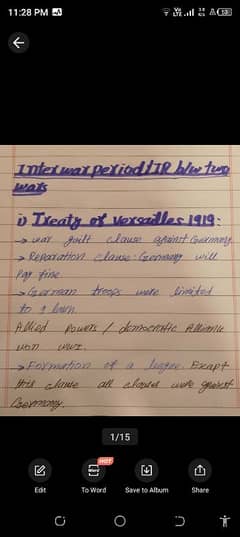 11:28 PM
Interwar period / IR b/w two
wars
i) Treaty of versailles 1919:
→ war guilt clause against Germany
→ Reparation clause: Germany will
Pay fine
→ German troops were limited
to 1
Allied powers / democratic Alliance
won WWI.
→ Formation of a league. Except
this clause all clauses were against
Germany.
1/15
HOT
Edit
To Word
Save to Album
Share